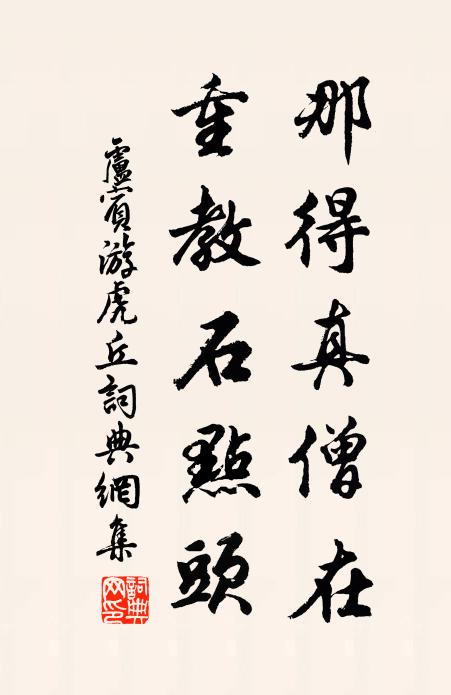 那得真僧在
重教石點頭
盧賓游虎丘詞典網集
詞典网印